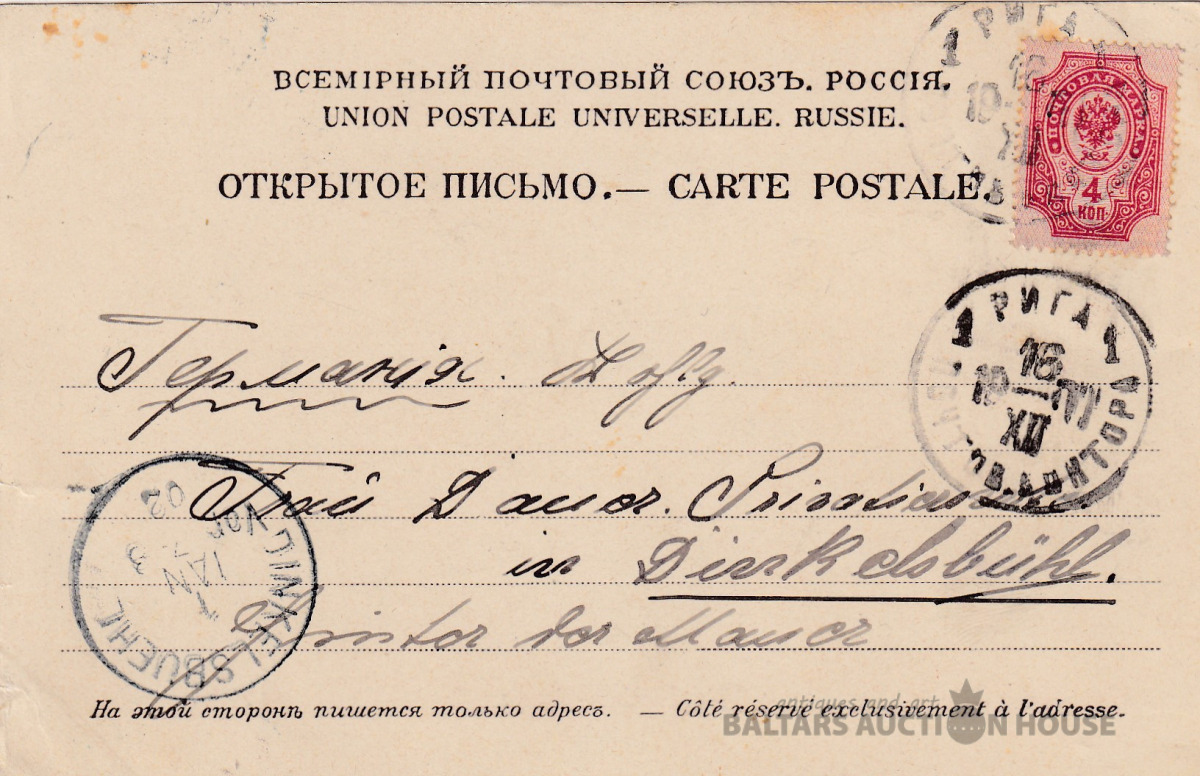 ВСЕМІРНЫЙ ПОЧТОВЫЙ СОЮЗЪ. РОССІЯ.
UNION POSTALE UNIVERSELLE. RUSSIE.
ОТКРЫТОЕ ПИСЬМО.— CARTE POSTALE.
1 РИГА 1
16
XII
ПОЧТОВАЯ МАРКА
4
КОП
Германія.
1 РИГА 1
16
XII
Frau Dauer. Privatiere
in Dinkelsbühl.
Hinter der Mauer
DINKELSBUEHL
1
JAN
Vor
02
На этой сторонѣ пишется только адресъ. — Côté réservé exclusivement à l'adresse.
antiques and art
BALTARS AUCTION HOUSE